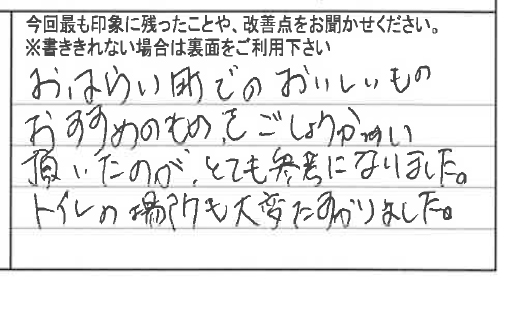 今回最も印象に残ったことや、改善点をお聞かせください。
※書ききれない場合は裏面をご利用下さい
おはらい町でのおいしいもの
おすすめのもの、をごしょうかい
頂いたのが、とても参考になりました。
トイレの場所も大変たすかりました。